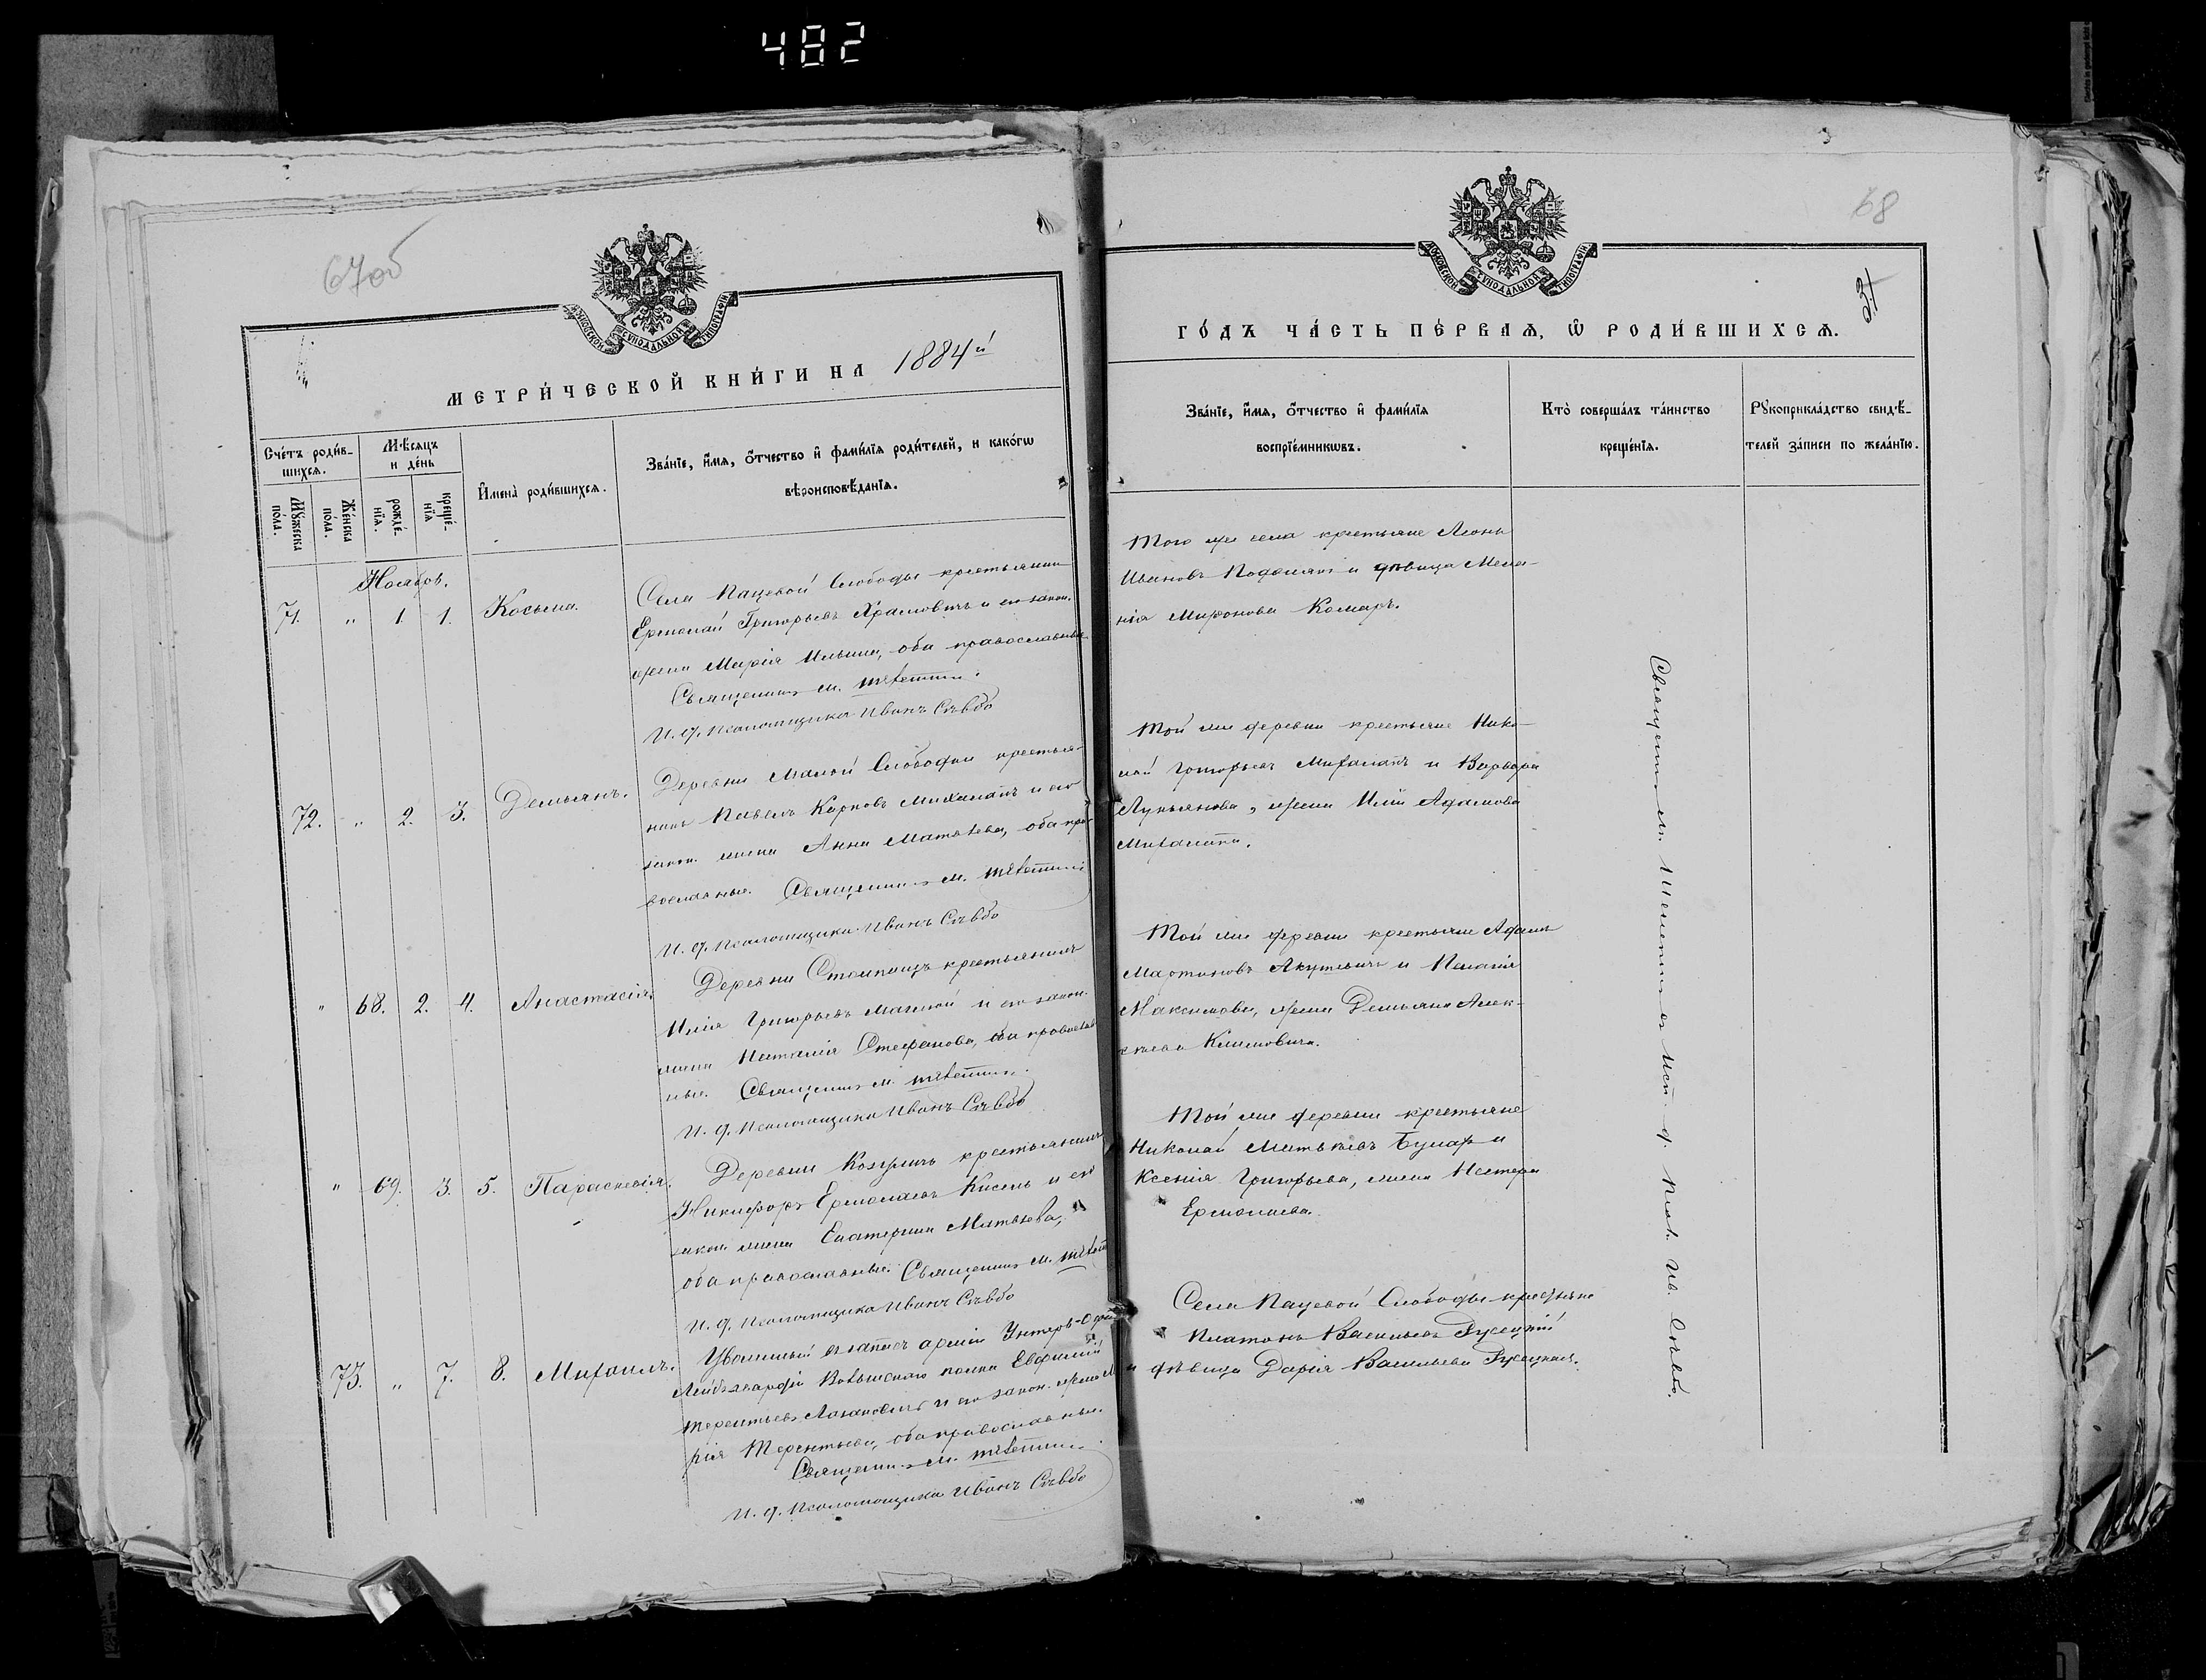 482
67об
МОСКОВСКОЙ СУНОДАЛЬНОЙ ТИПОГРАФІИ
МЕТРИ́ЧЕСКОЙ КНИ́ГИ НА 1884й
Сче́тъ роди́в-
шихсѧ.
Мѣсѧцъ
и де́нь
Мꙋ́жеска
по́ла.
Же́нска
по́ла.
рожде́-
нїѧ.
креще́-
нїѧ
И҆мена̀ роди́вшихсѧ.
Зва́нїе, и҆́мѧ, ѻ҆́тчество и҆ фами́лїѧ роди́телей, и како́гѡ
вѣроисповѣ́данїѧ.
Ноябрь.
71. " 1. 1. Косьма.
Села Пацевой Слободы крестьянинъ
Ермолай Григорьевъ Храмовичъ и его закон.
жена Марія Ильина, оба православные
Священникъ М.
И. д. псаломщика Иванъ Съвбо
72. " 2. 3. Демьянъ.
Деревни Малой Слободки крестья-
нинъ Павелъ Карповъ Михалапъ и его
закон. жена Анна Матвѣева, оба пра-
вославные. Священникъ М.
И. д. псаломщика Иванъ Съвбо
" 68. 2. 4. Анастасія.
Деревни Столпищъ крестьянинъ
Илія Григорьевъ и его закон.
жена Наталія Стефанова, оба православ-
ные. Священникъ М.
И. д. псаломщика Иванъ Съвбо
" 69. 3. 5. Параскевія.
Деревни Козуличъ крестьянинъ
Никифоръ Ермолаевъ Кисель и его
закон. жена Екатерина Матвѣева,
оба православные. Священникъ М.
И. д. псаломщика Иванъ Съвбо
73. " 7. 8. Михаилъ.
Уволенный въ запасъ арміи Унтеръ-Офи
Лейбгвардіи полка Евфимій
Терентьевъ и его закон. жена Ма
рія Терентьева, оба православные.
Священникъ М.
И. д. псаломщика Иванъ Съвбо
68
МОСКОВСКОЙ СУНОДАЛЬНОЙ ТИПОГРАФІИ
ГО́ДЪ ЧА́СТЬ ПЕ́РВАѦ, Ѽ РОДИ́ВШИХСѦ.
Зва́нїе, и҆́мѧ, ѻ҆́тчество и҆ фами́лїѧ
воспрїе́мникѡвъ.
Кто̀ соверша́лъ та́инство
креще́нїѧ.
Рꙋкоприкла́дство свидѣ́-
телей за́писи по жела́нїю.
Того же села крестьяне Леонъ
Ивановъ и дѣвица Мела-
нія Миронова Комаръ.
Той же деревни крестьяне Нико-
лай Григорьевъ Михалапъ и Варвара
Лукьянова, жена Иліи Адамова
Михалапа.
Той же деревни крестьяне Адамъ
Мартиновъ Акулевичъ и Пелагія
Максимова, жена Демьяна Алек-
сѣева Климовича.
Той же деревни крестьяне
Николай Матвѣевъ и
Ксенія Григорьева, жена Нестера
Ермолаева.
Села Пацевой Слободы крестьяне
Платонъ Васильевъ Русецкій
и дѣвица Дарія Васильева Русецкая.
Священникъ М. и Исп. д. Псал. Ив. Съвбо.